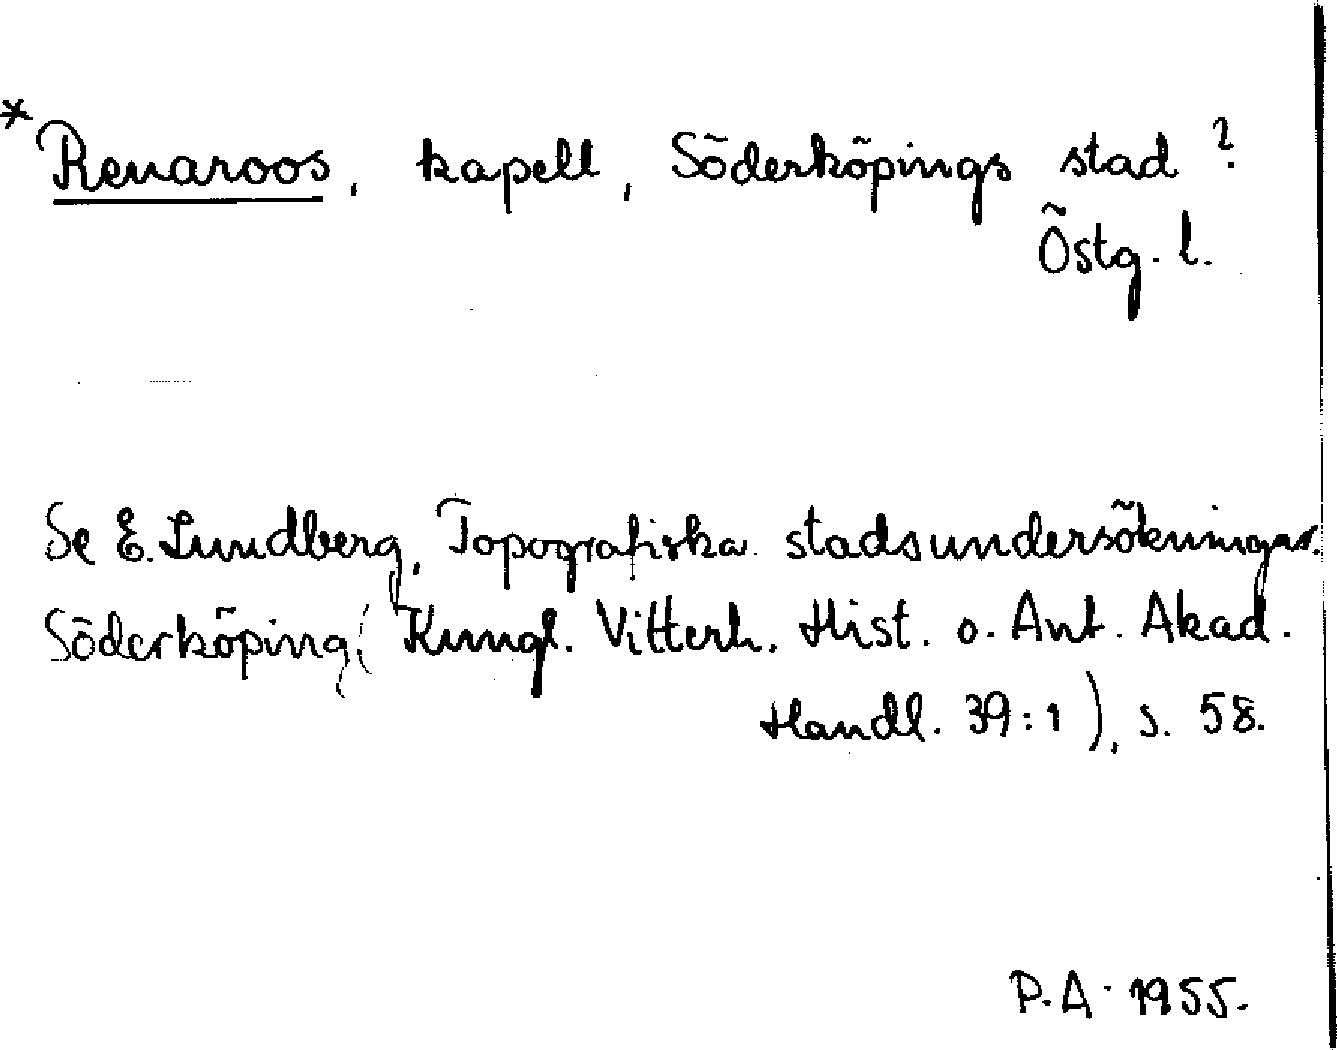 * Renaroos, kapell, Söderköpings stad?
Östg. l.
Se E. Lundberg, Topografiska stadsundersökningar.
Söderköping (Kungl. Vitterh. Hist. o. Ant. Akad.
Handl. 39:1), s. 58.
P.A. 1955.